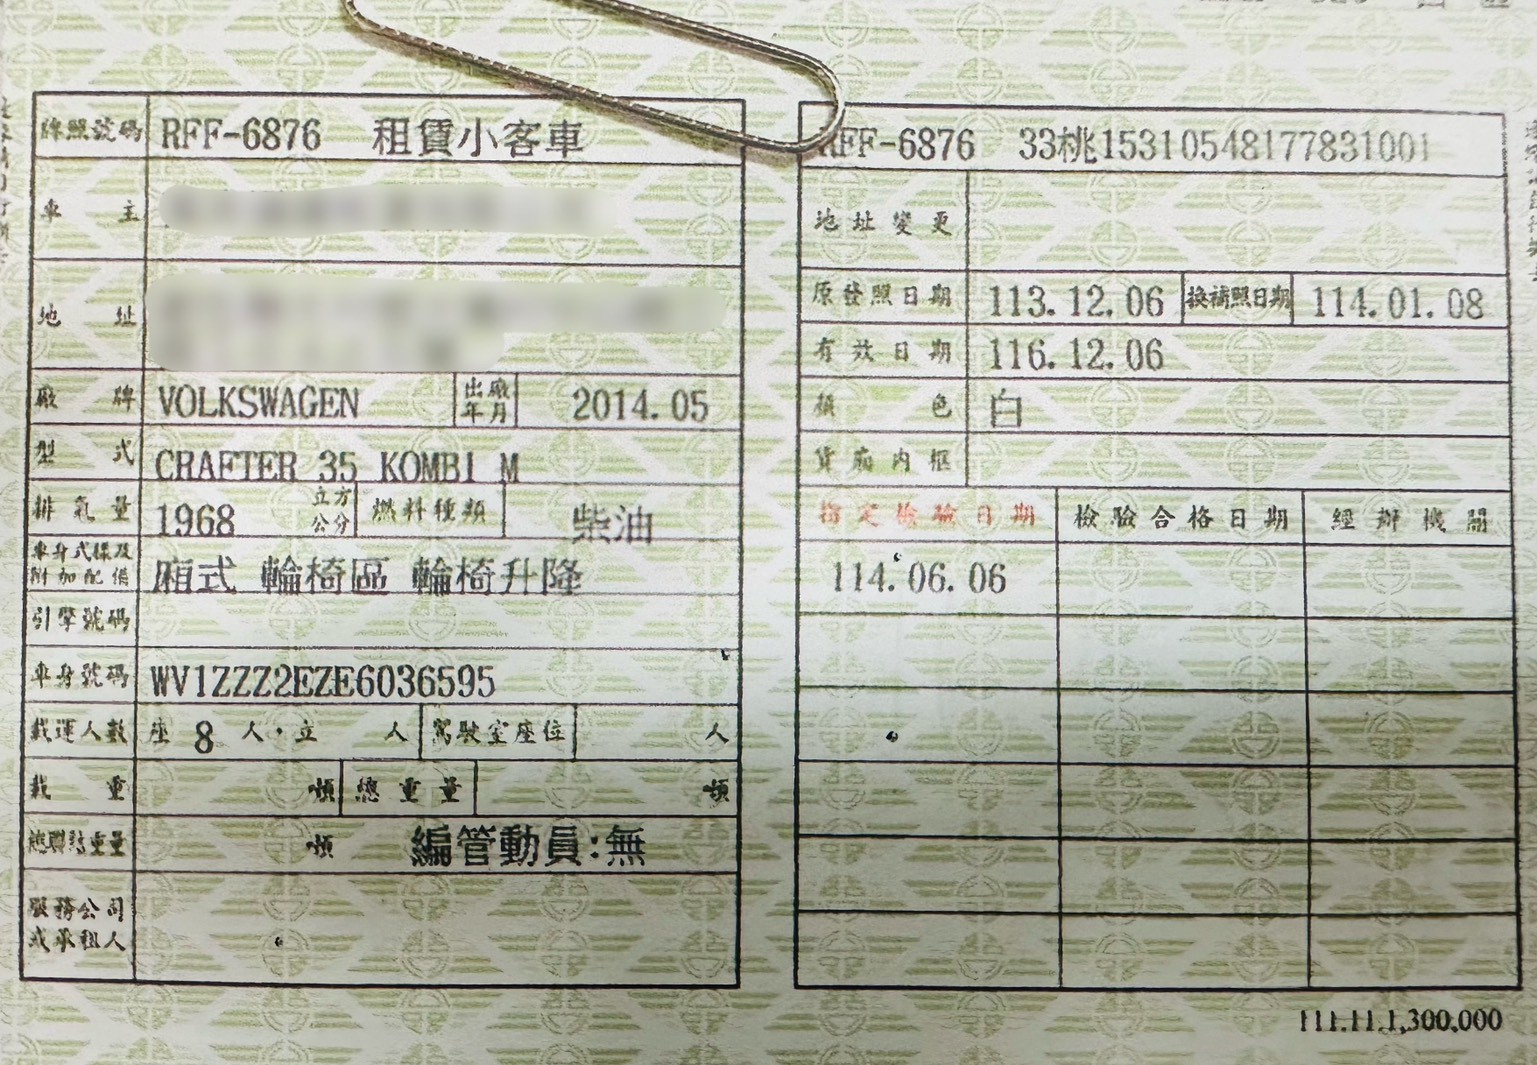 牌照號碼 RFF-6876 租賃小客車
車主
地址
廠牌 VOLKSWAGEN 出廠年月 2014.05
型式 CRAFTER 35 KOMBI M
排氣量 1968 立方公分 燃料種類 柴油
車身式樣及附加配備 廂式 輪椅區 輪椅升隆
引擎號碼
車身號碼 WV1ZZZ2EZE6036595
載運人數 座 8 人·立 人 駕駛室座位 人
載重 頓 總重量 頓
總聯結重量 頓 編管動員:無
服務公司或承租人
RFF-6876 33桃15310548177831001
地址變更
原發照日期 113.12.06 換補照日期 114.01.08
有效日期 116.12.06
顏色 白
貨廂內框
指定檢驗日期 檢驗合格日期 經辦機關
114.06.06
111.11.1,300,000